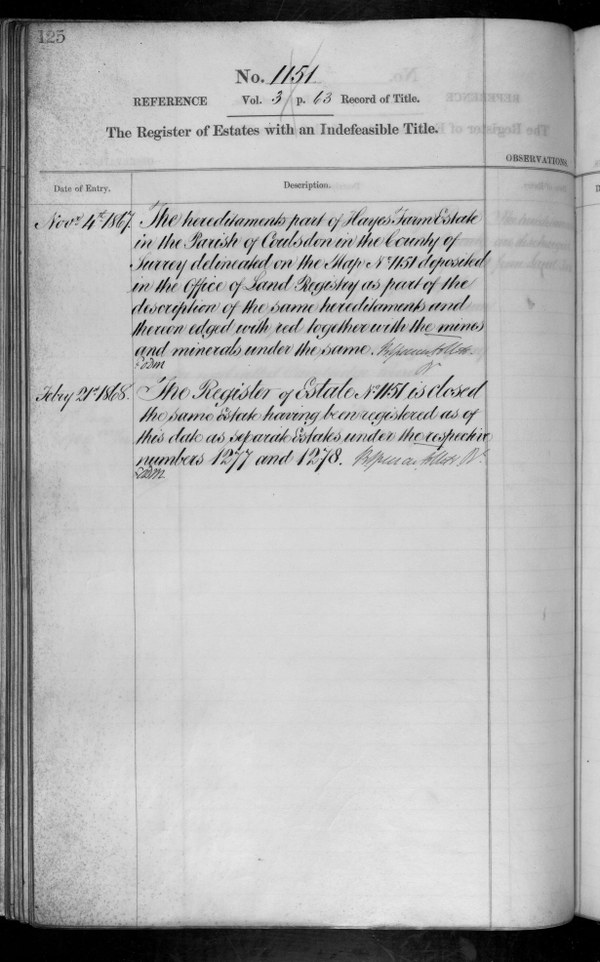 125
No. 1151
REFERENCE Vol. 3 p. 63 Record of Title.
The Register of Estates with an Indefeasible Title.
OBSERVATIONS.
Date of Entry.
Description.
Novr. 4th. 1867. The hereditaments part of Hayes Farm Estate
in the Parish of Coulsdon in the County of
Surrey delineated on the Map No. 1151 deposited
in the Office of Land Registry as part of the
description of the same hereditaments and
thereon edged with red together with the mines
and minerals under the same.
Febry 21st. 1868. The Register of Estate No. 1151 is closed
the same Estate having been registered as of
this date as separate Estates under the respective
numbers 1277 and 1278.